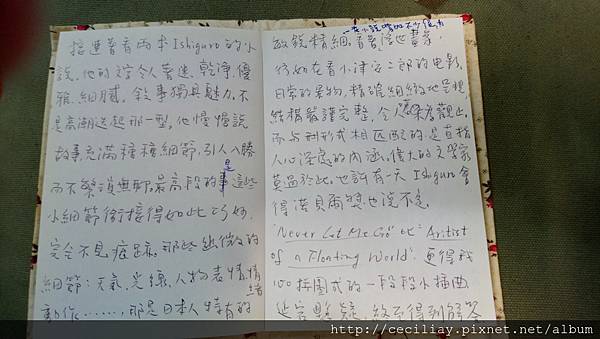 接連著看兩本Ishiguro的小
說。他的文字令人著迷、乾淨、優
雅、細膩。敘事獨具魅力，不
是高潮迭起那一型，他慢慢說
故事，充滿種種細節，引人入勝
而不繁瑣無聊，最高段的是這些
小細節銜接得如此巧妙，
完全不見痕跡。那些幽微的
細節：天氣、光線、人物表情、情緒
動作……，那是日本人特有的
敏銳精細。看著他畫家，
彷如在看小津安二郎的电影，
日常的景物，精確細緻地呈現，
結構嚴謹完整，令人嘆為觀止。
而与形式相匹配的，是直指
人心深處的內涵。偉大的文學家
莫過於此。也許有一天 Ishiguro 會
得諾貝爾獎也說不定。
"Never Let Me Go" 比 "Aritist
of a Floating World" 更得我
心。拼圖式的一段段小插曲
延宕懸疑，終于得到解答
http://ceciliay.pixnet.net/album